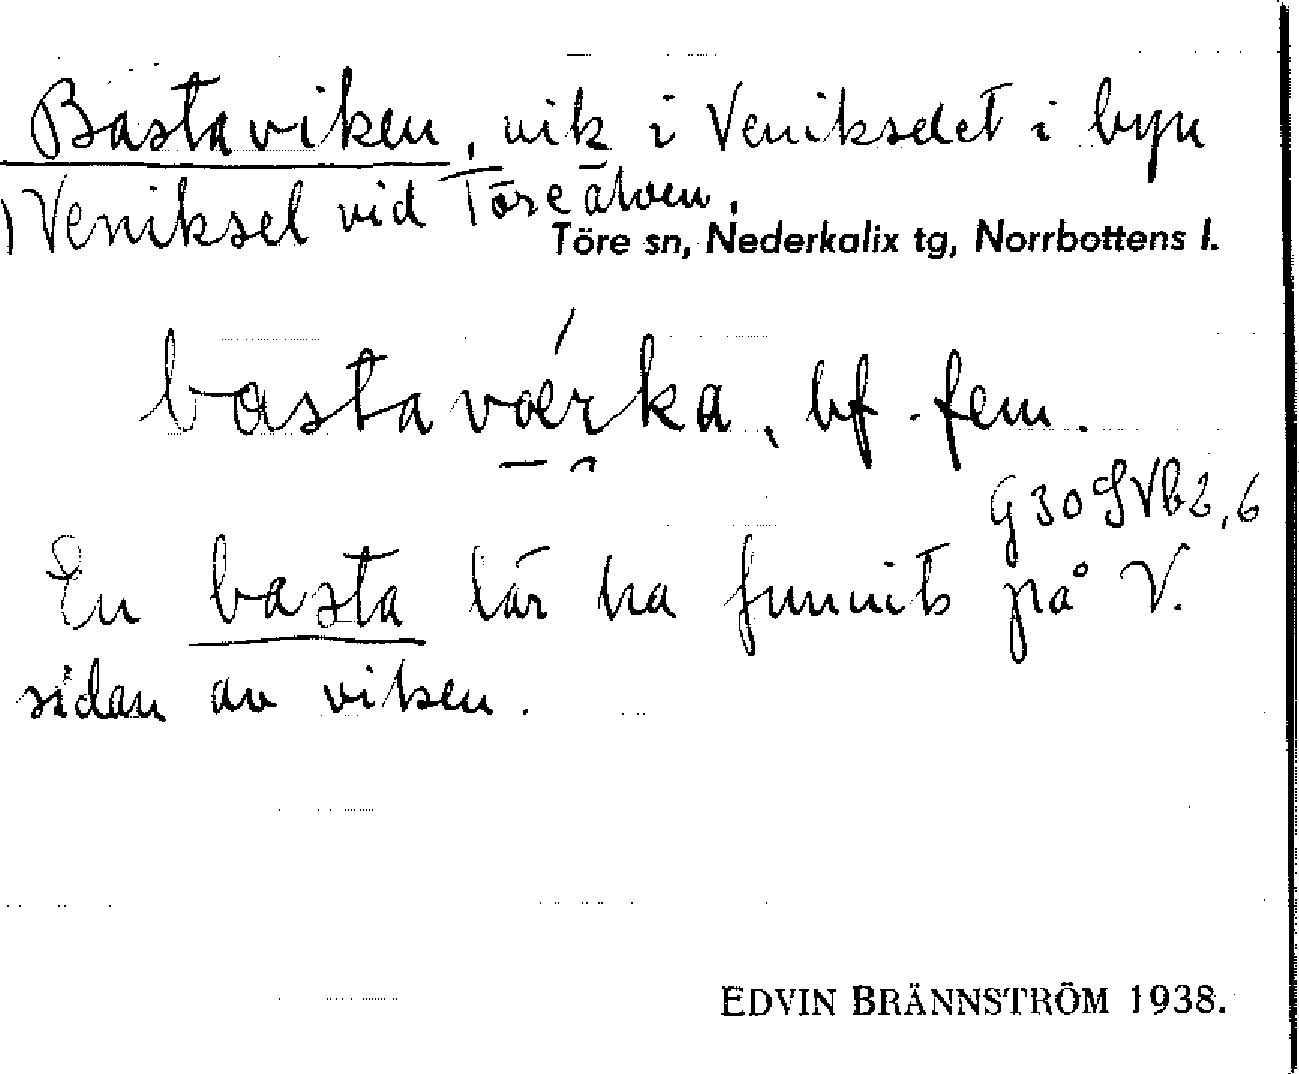 Bastaviken, vik i Venikselet i byn
Veniksel vid Töreälven.
Töre sn, Nederkalix tg, Norrbottens l.
bastavǽrka, bf. fem.
G 30 SVb2,6
En basta lär ha funnits på V.
sidan av viken.
EDVIN BRÄNNSTRÖM 1938.